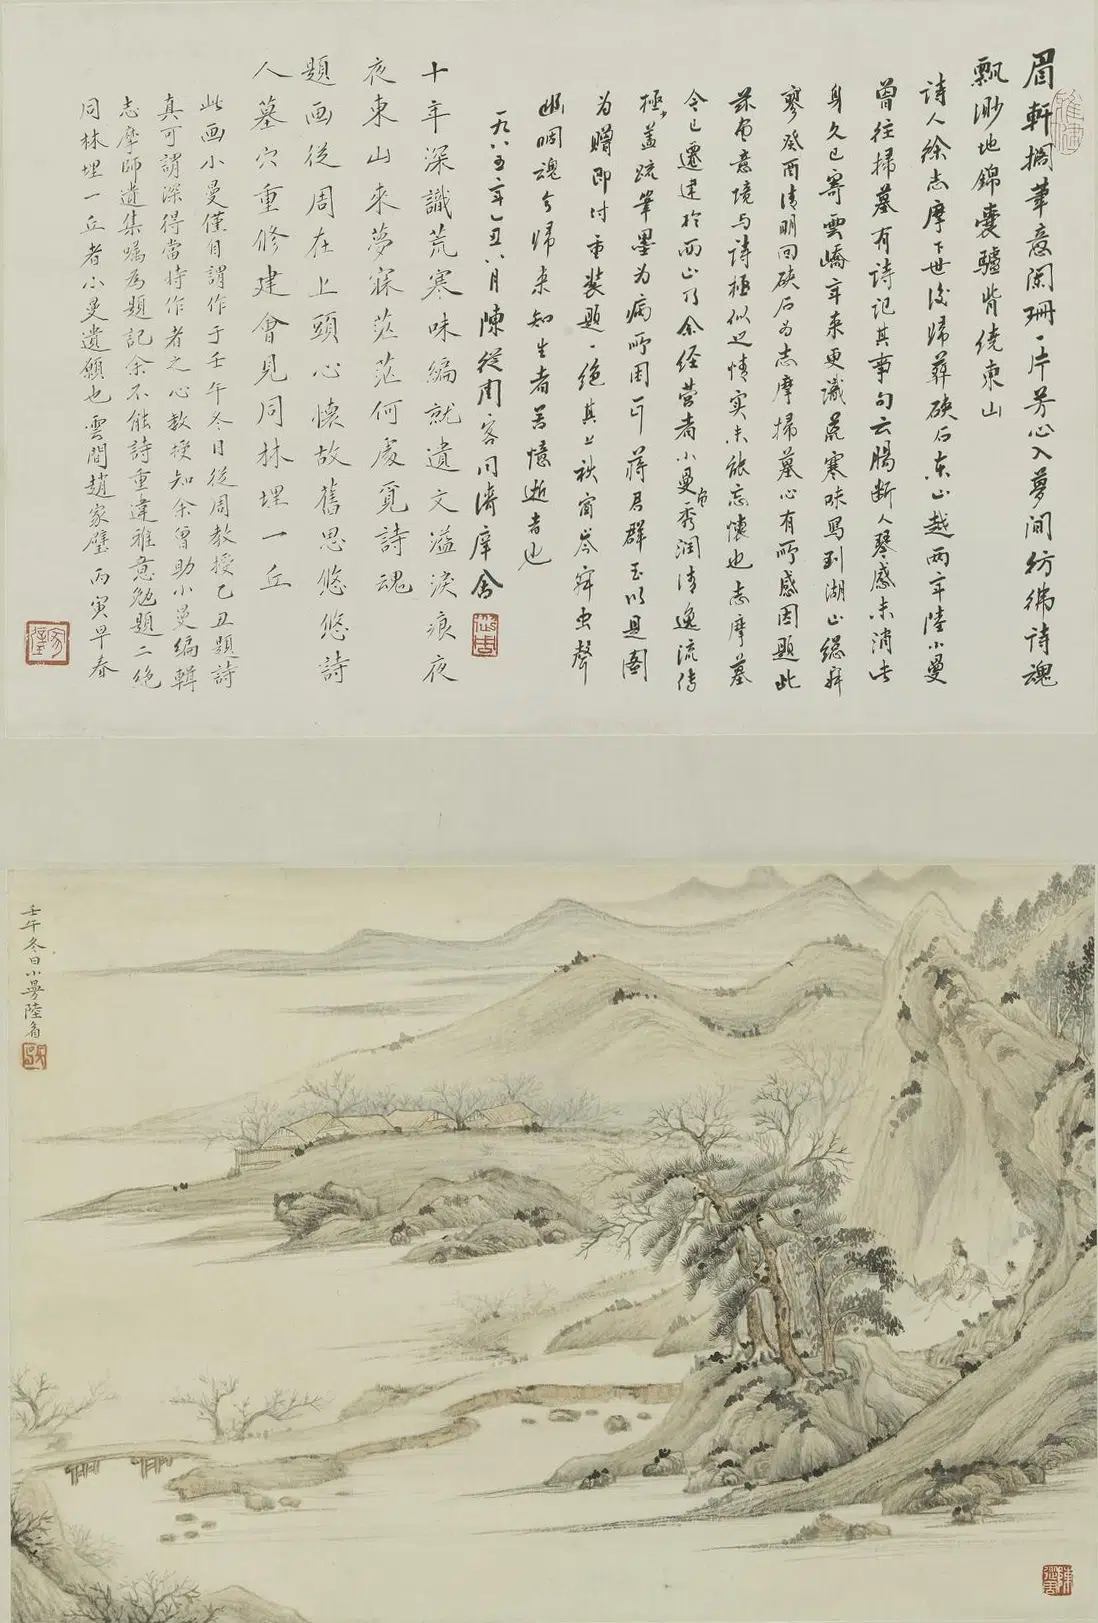 眉軒擱筆意闌珊一片芳心入夢間彷彿詩魂
飄渺地錦囊驢背繞東山
詩人徐志摩下世後歸葬硤石東山越兩年陸小曼
曾往掃墓有詩記其事句云腸斷人琴感未消此
身久已寄雲嶠年來更識荒寒味寫到湖山總寂
寥癸酉清明回硤石為志摩掃墓心有所感因題此
茲卷意境與詩極似迟情實未能忘懷也志摩墓
今已遷建於西山乃余經營者小曼畫秀潤清逸流傳
極少蓋疏筆墨為病所困耳蔣君群玉以是圖
為贈即付重裝題一絕其上秋窗岑寂虫聲
幽咽魂兮歸來知生者苦憶逝者也
一九八五年乙丑八月陳從周客同濟庠舍
十年深識荒寒味編就遺文溢淚痕夜
夜東山來夢寐茫茫何處覓詩魂
題画從周在上頭心懷故舊思悠悠詩
人墓穴重修建會見同林埋一丘
此画小曼僅自謂作于壬午冬日從周教授乙丑題詩
真可謂深得當時作者之心教授知余曾助小曼編輯
志摩師遺集囑為題記余不能詩重違雅意勉題二絕
同林埋一丘者小曼遺願也雲間趙家璧丙寅早春
家璧
壬午冬日小曼陸眉